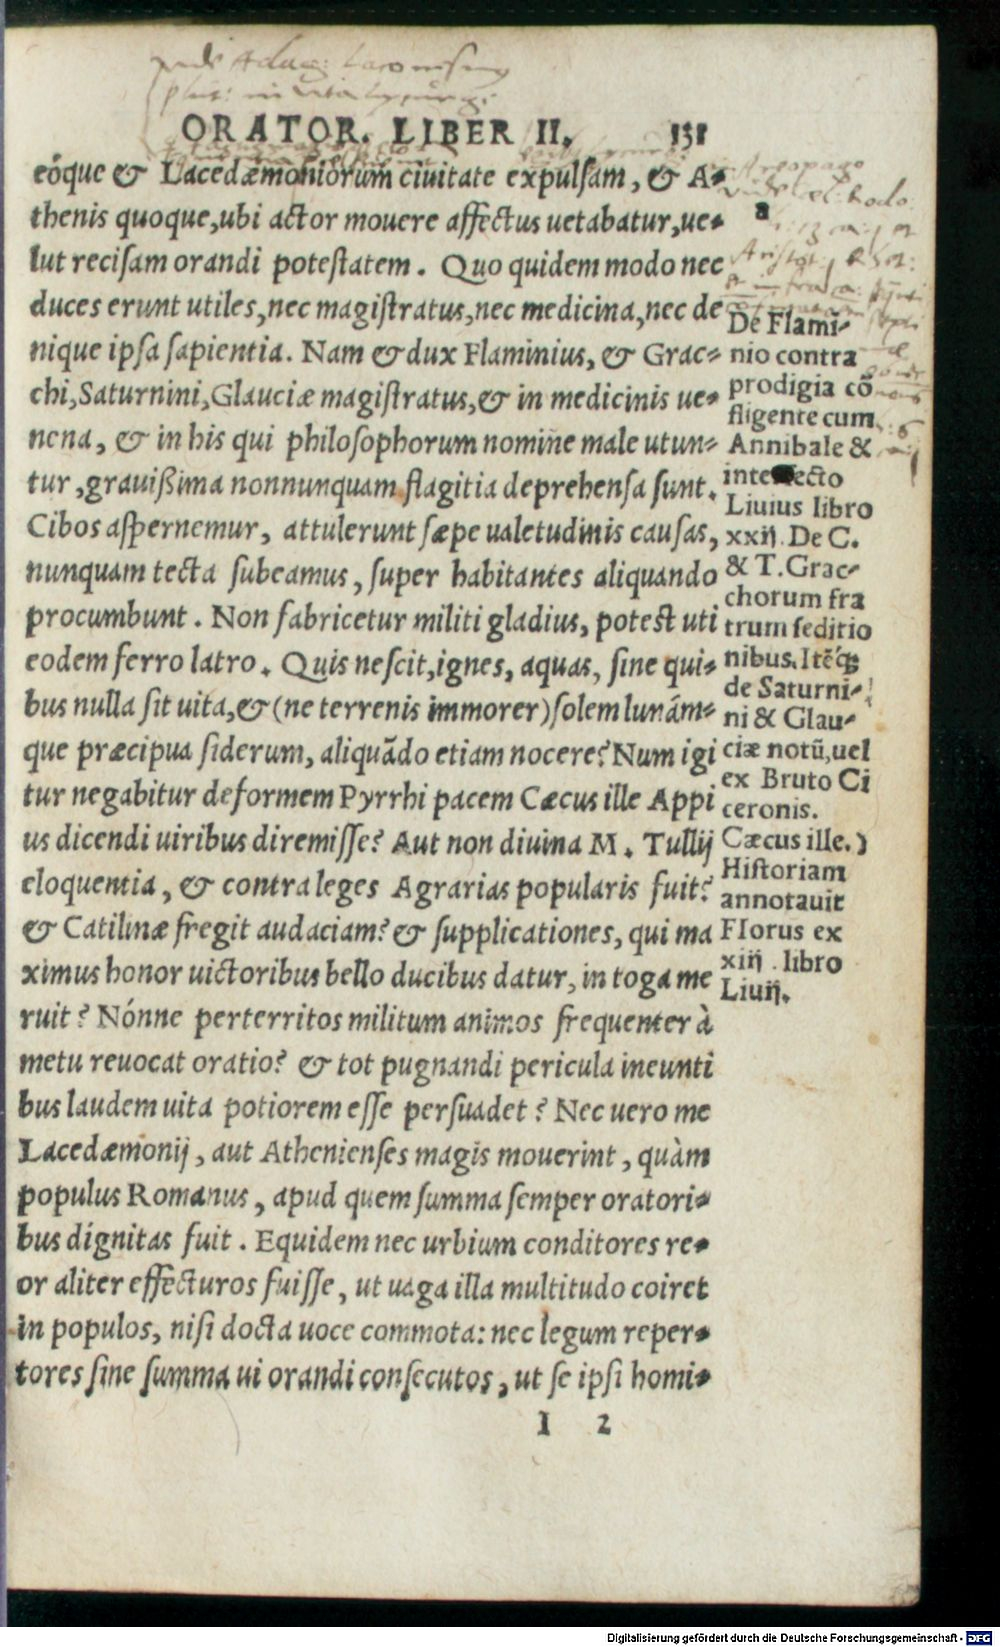 ORATOR. LIBER II. 131
eóque & Lacedæmoniorum ciuitate expulsam, & A-
thenis quoque, ubi actor mouere affectus uetabatur, ue-
lut recisam orandi potestatem. Quo quidem modo nec
duces erunt utiles, nec magistratus, nec medicina, nec de
nique ipsa sapientia. Nam & dux Flaminius, & Grac-
chi, Saturnini, Glauciæ magistratus, & in medicinis ue-
nena, & in his qui philosophorum nomine male utun-
tur, grauißima nonnunquam flagitia deprehensa sunt.
Cibos aspernemur, attulerunt sæpe ualetudinis causas,
nunquam tecta subeamus, super habitantes aliquando
procumbunt. Non fabricetur militi gladius, potest uti
eodem ferro latro. Quis nescit, ignes, aquas, sine qui-
bus nulla sit uita, & (ne terrenis immorer) solem lunám-
que præcipua siderum, aliquãdo etiam nocere? Num igi
tur negabitur deformem Pyrrhi pacem Cæcus ille Appi
us dicendi uiribus diremisse? Aut non diuina M. Tullij
eloquentia, & contra leges Agrarias popularis fuit?
& Catilinæ fregit audaciam? & supplicationes, qui ma
ximus honor uictoribus bello ducibus datur, in toga me
ruit? Nónne perterritos militum animos frequenter à
metu reuocat oratio? & tot pugnandi pericula ineunti
bus laudem uita potiorem esse persuadet? Nec uero me
Lacedæmonij, aut Athenienses magis mouerint, quàm
populus Romanus, apud quem summa semper oratori-
bus dignitas fuit. Equidem nec urbium conditores re-
or aliter effecturos fuisse, ut uaga illa multitudo coiret
in populos, nisi docta uoce commota: nec legum reper-
tores sine summa ui orandi consecutos, ut se ipsi homi-
I 2
a
De Flami-
nio contra
prodigia cõ
fligente cum
Annibale &
Liuius libro
xxij. De C.
& T. Grac-
chorum fra
trum seditio
nibus. Itéq;
de Saturni-
ni & Glau-
ciæ notũ, uel
ex Bruto Ci
ceronis.
Cæcus ille.)
Historiam
annotauit
Florus ex
xiij. libro
Liuij.
Digitalisierung gefördert durch die Deutsche Forschungsgemeinschaft - DFG